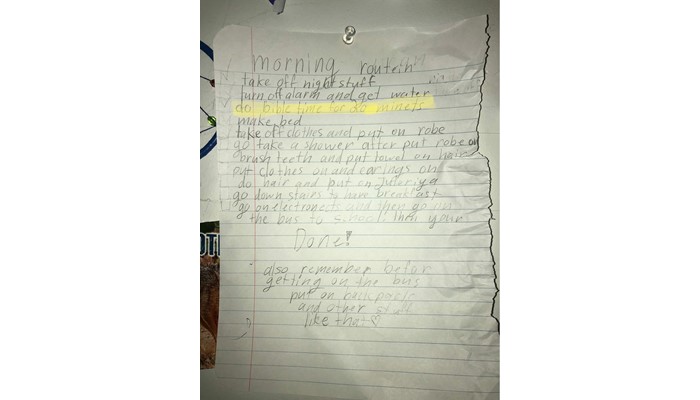 morning routein
take off night stuff
turn off alarm and get water
do bible time for 30 minets
make bed
take off clothes and put on robe
go take a shower after put robe on
brush teeth and put towel on hair
put clothes on and earings on
do hair and put on
go down stairs to have breakfast
go on electronects and then go on
the bus to school then your
Done!
also remember befor
getting on the bus
put on backpack
and other stuff
like that